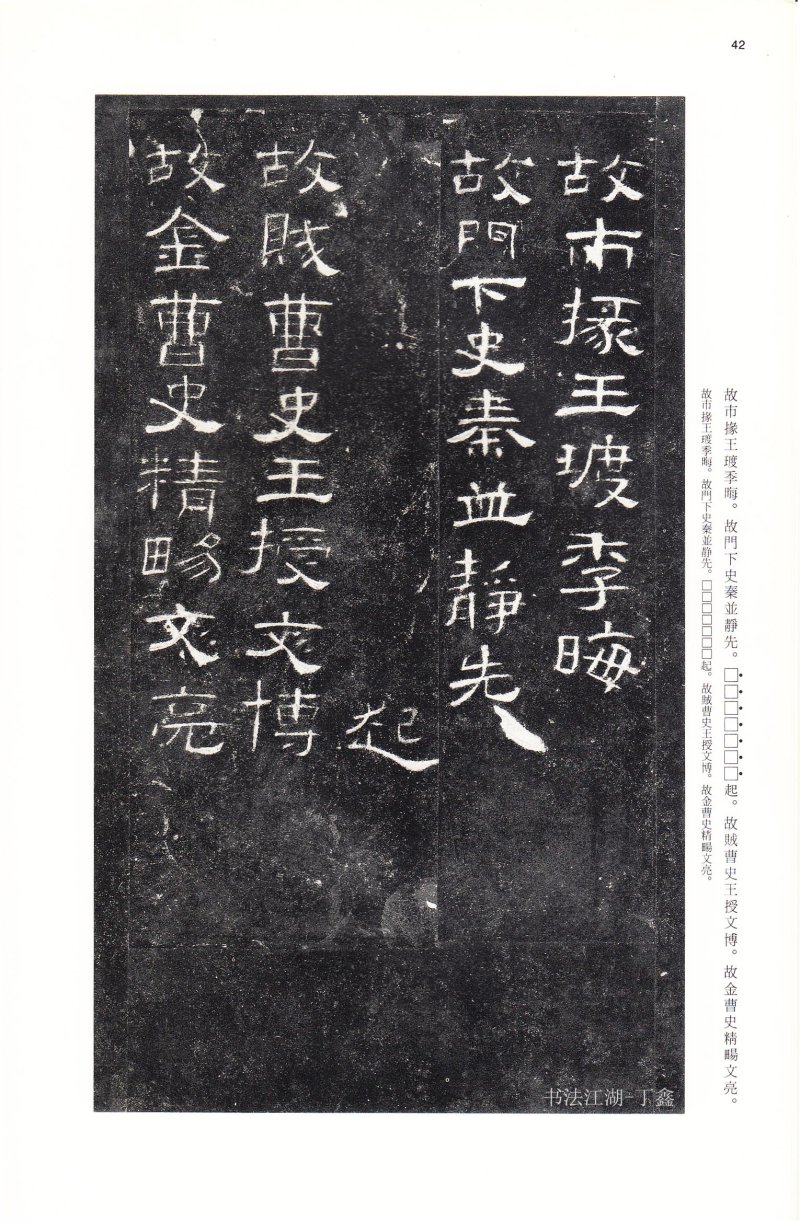 42
故市掾王珷季晦。故門下史秦並靜先。□□□□□□□起。故賊曹史王授文博。故金曹史精暘文亮。
故市掾王珷季晦。故門下史秦並静先。□□□□□□□起。故賊曹史王授文博。故金曹史精暘文亮。
故市掾王季晦
故門下史秦並靜先
起
故賊曹史王授文博
故金曹史精暘文亮
书法江湖-丁鑫